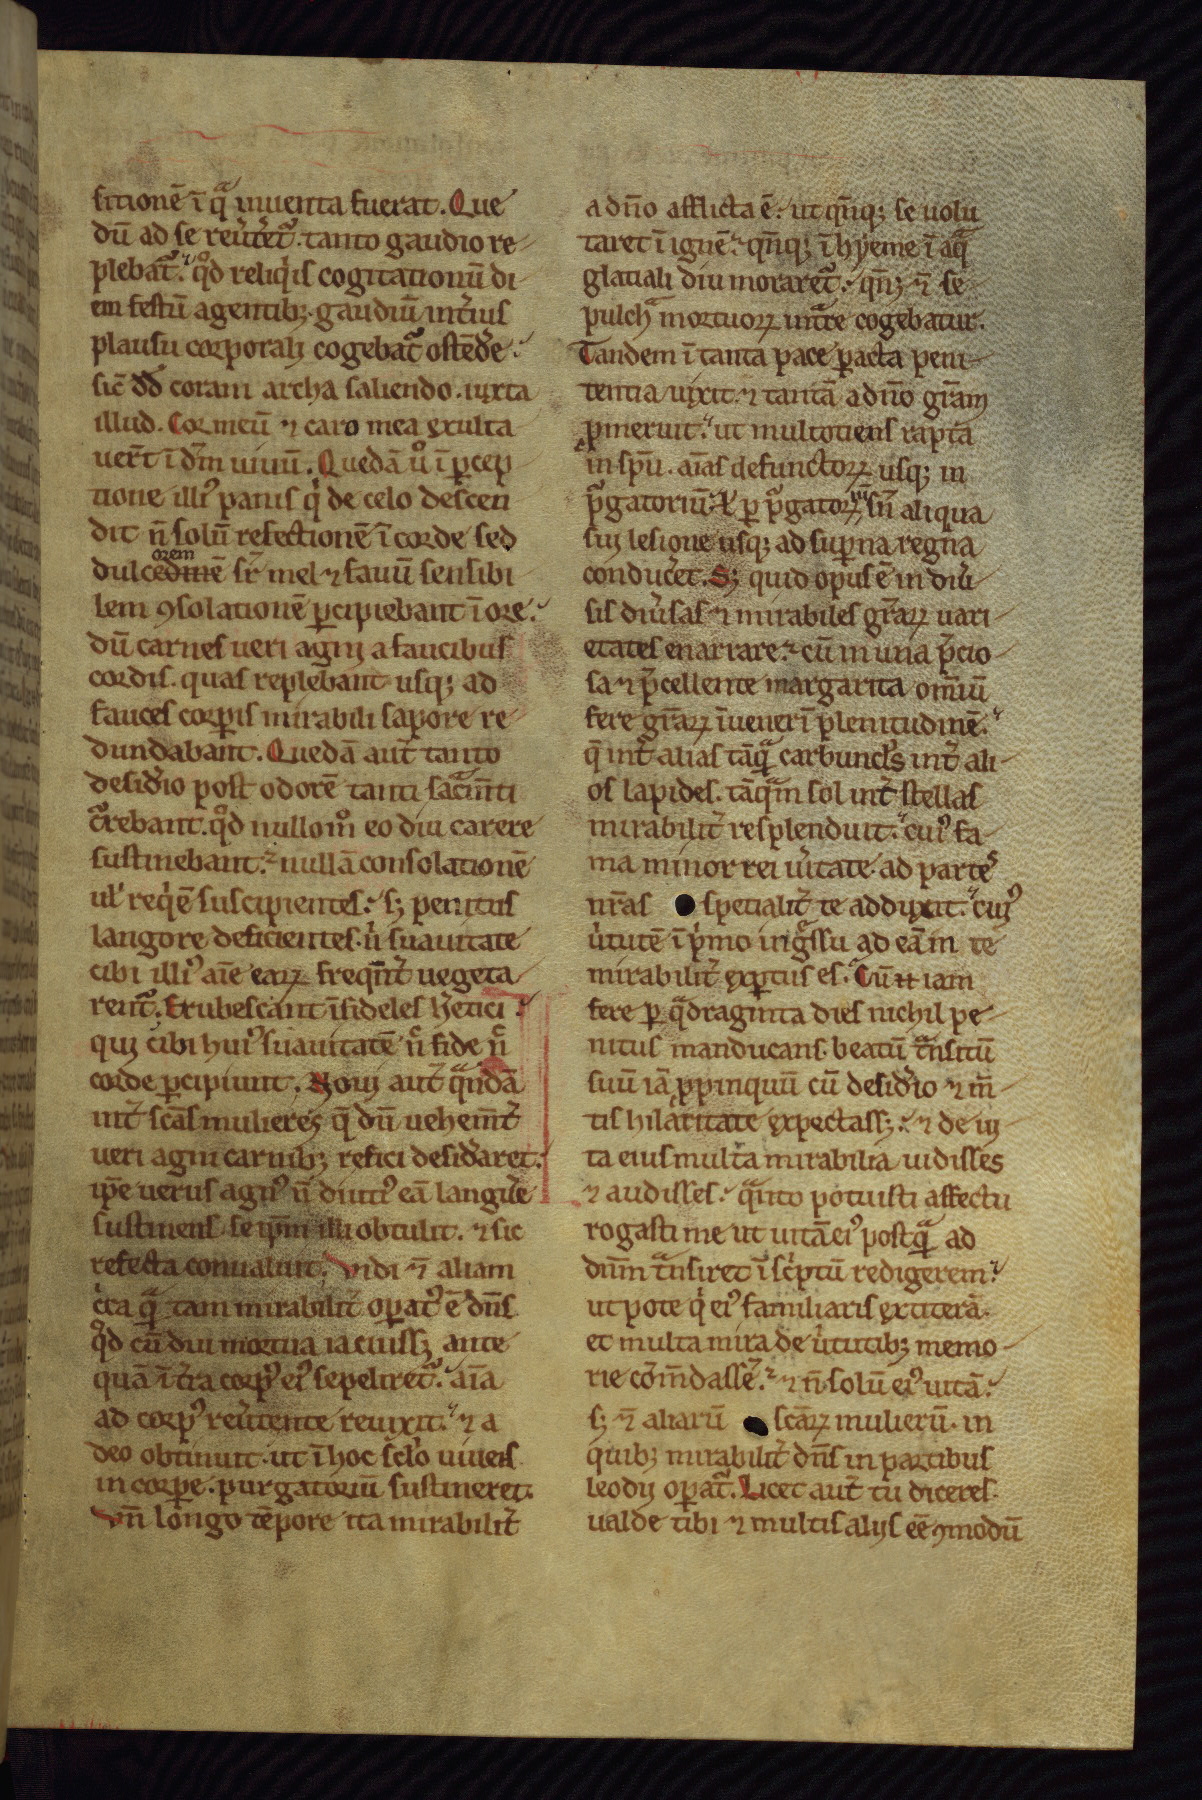 sitionē ī qͣ inuenta fuerat. Que
dū ad se reu̾tet᷑. tanto gaudio re-
plebat᷑. qͦd reliqͥs cogitationū di
em festū agentibꝫ. gaudiū int̾ius
plausu corporali cogebat᷑ ostēde̾.
sic̄ dd̄ coram archa saliendo. iuxta
illud. Cor meū ⁊ caro mea exulta
uer̄t ī dm̄ uiuū. Quedā u̾o ī ꝑcep
tione illiꝰ panis qͥ de celo descen
dit n̄ solū refectionē ī corde sed
dulcedinē orem sr̄ mel ⁊ fauū sensibi
lem ꝯsolationē ꝑcipiebant ī ore.
dū carnes ueri agni a faucibus
cordis. quas replebant usqꝫ ad
fauces corꝑis mirabili sapore re-
dundabant. Quedā aut̄ tanto
desid̾io post odorē tanti sac̄m̄ti
c᷑rebant. qͦd nullom̊ eo diu carere
sustinebant. nullā consolationē
ul̾ reqͥē suscipientes. sꝫ penitus
langore deficientes. nͥ suauitate
cibi illiꝰ aīe earꝝ freqn̄t̾ uegeta
rent᷑. Erubescant īfideles he̾tici.
qui cibi huiꝰ suauitatē n̄ fide n̄
corde ꝑcipiunt. Noui aut̄ qͣndā
int̾ scās mulieres q̄ dū uehem̄t̾
ueri agni carnibꝫ refici desid̾aret.
ip̄e uerus agnꝰ n̄ diutiꝰ eā langue̾
sustinens. se ip̄m illi obtulit. ⁊ sic
refecta conualuit. Vidi ⁊̄ aliam
cͥca qͣ̄ tam mirabilit̾ oꝑatꝰ ē dn̄s.
qͦd cū diu mortua iacuissꝫ ante
quā ī t̾ra corpꝰ eiꝰ sepeliret᷑. aīa
ad corpꝰ reu̾tente reuixit. ⁊ a
deo obtinuit. ut ī hoc sc̄lo uiuens
in corꝑe. purgatoriū sustineret.
Vn̄ longo tēpore ita mirabilit̾
a dn̄o afflicta ē. ut qn̄qꝫ se uolu
taret ī ignē. qn̄qꝫ ī hyeme ī aqͣ
glaciali diu moraret᷑. qn̄qꝫ ⁊̄ se
pulchͣ mortuorꝝ int̾re cogebatur.
Tandem ī tanta pace ꝑacta peni-
tentia uixit. ⁊ tantā a dn̄o gr̄am
ꝓmeruit. ut multotiens rapta
in spū. aīas defunctorꝝ usqꝫ in
p᷑gatoriū. ꝑ p᷑gatorꝝ sn̄ aliqua
sui lesione usqꝫ ad suꝑna regna
conduce̾t. Sꝫ quid opus ē in diu̾
sis diu̾sas ⁊ mirabiles gr̄arꝝ uari-
etates enarrare. cū in una p̄cio-
sa ⁊ p̄cellente margarita om̄iū
fere gr̄arꝝ īuenerī plenitudinē.
q̄ int̾ alias tāqͣ̄ carbunclꝰs int̾ ali-
os lapides. tāqͣm sol int̾ stellas
mirabilit̾ resplenduit. cuiꝰ fa-
ma minor rei u̾itate. ad partes
nr̄as specialit̾ te adduxit. cuiꝰ
u̾tutē ī pͥmo ingͤssu ad eā in te
mirabilit̾ exꝑtus es. Cū iam
fere ꝑ qͣdraginta dies nichil pe-
nitus manducans. beatū tͣnsitū
suū iā ꝓpinquū cū desid̾io ⁊ m̄
tis hilaritate expectassꝫ. ⁊ de ui-
ta eius multa mirabilia uidisses
⁊ audisses. qͣnto potuisti affectu
rogasti me ut uitā eiꝰ postqͣ̄ ad
dn̄m tͣnsiret ī scͥptū redigerem.
ut pote qͥ eiꝰ familiaris extiterā.
et multa mira de u̾tutibꝫ memo-
rie com̄dassē. ⁊ n̄ solū eiꝰ uitā.
sꝫ ⁊̄ aliarū scārꝝ mulierū. in
quibꝫ mirabilit̾ dn̄s in partibus
leodii oꝑat᷑. Licet aut̄ tu diceres.
ualde tibi ⁊ multis aliis eē ꝯmodū